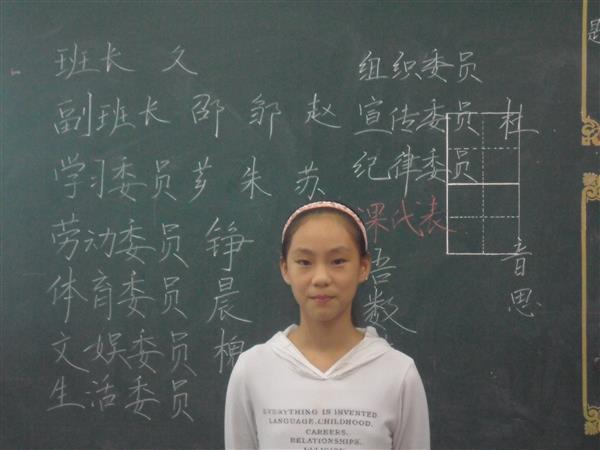 班长 久
副班长 邵 邹 赵
学习委员 芗 朱 苏
劳动委员 铮
体育委员 晨
文娱委员
生活委员
组织委员
宣传委员 杜
纪律委员
课代表
语
数
音
思
题
EVERYTHING IS INVENTED
LANGUAGE, CHILDHOOD,
CAREERS,
RELATIONSHIPS,
RELIGION